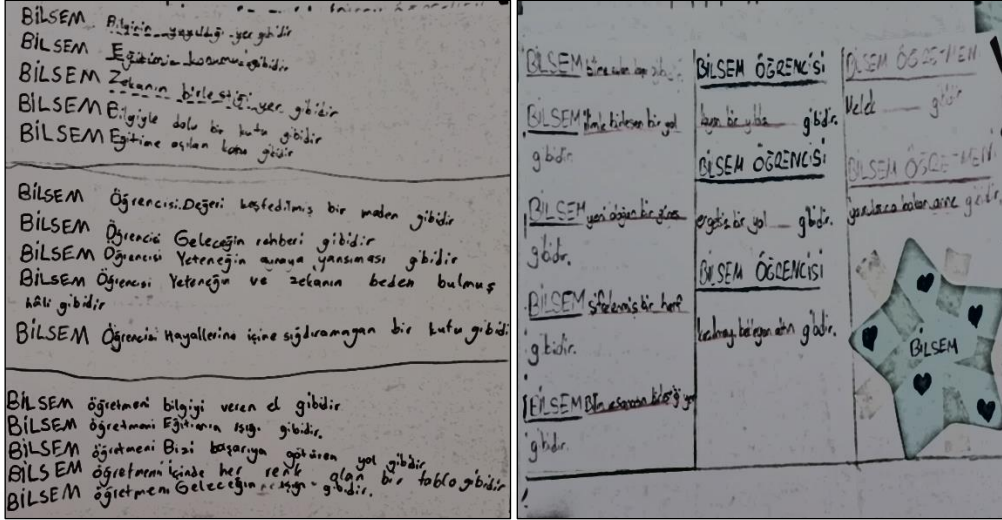 BİLSEM Bilginin yayıldığı yer gibidir
BİLSEM Eğitimin konumu gibidir
BİLSEM Zekanın birleştiği yer gibidir
BİLSEM Bilgiyle dolu bir kutu gibidir
BİLSEM Eğitime açılan kutu gibidir
BİLSEM Öğrencisi Değeri keşfedilmiş bir maden gibidir
BİLSEM Öğrencisi Geleceğin rehberi gibidir
BİLSEM Öğrencisi Yeteneğin aynaya yansıması gibidir
BİLSEM Öğrencisi Yeteneğin ve zekanın beden bulmuş
hâli gibidir
BİLSEM Öğrencisi Hayallerine içine sığdıramayan bir kutu gibidi
BİLSEM öğretmeni bilgiyi veren el gibidir
BİLSEM öğretmeni Eğitimin ışığı gibidir.
BİLSEM öğretmeni Bizi başarıya götüren yol gibidir
BİLSEM öğretmeni içinde her renk olan bir tablo gibidir
BİLSEM öğretmeni Geleceğin ışığı gibidir.
BİLSEM gibidir.
BİLSEM bir yol
gibidir.
BİLSEM yeni doğan bir güneş
gibidir.
BİLSEM şifrelenmiş bir harf
gibidir.
BİLSEM
gibidir.
BİLSEM ÖĞRENCİSİ
bir yıldız gibidir.
BİLSEM ÖĞRENCİSİ
bir yol gibidir.
BİLSEM ÖĞRENCİSİ
bekleyen altın gibidir.
BİLSEM ÖĞRETMENİ
Melek gibidir
BİLSEM ÖĞRETMENİ
yavrularına bakan anne gibidir.
BİLSEM